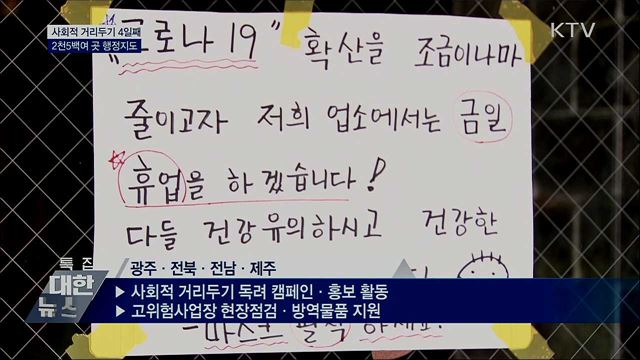 사회적 거리두기 4일째
2천5백여 곳 행정지도
KTV
"코로나 19" 확산을 조금이나마
줄이고자 저희 업소에서는 금일
휴업을 하겠습니다!
다들 건강유의하시고 건강한
특집
대한
뉴스
광주·전북·전남·제주
▶ 사회적 거리두기 독려 캠페인·홍보 활동
▶ 고위험사업장 현장점검·방역물품 지원
-마스크 필착 하세요!